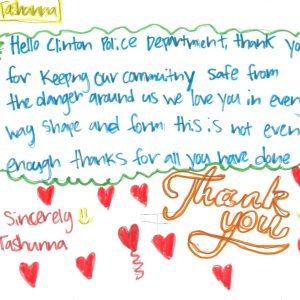 Tashanna
Hello Clinton Police Department, thank yo
for Keepng our commuitny safe from
the danger around us we love you in ever
way shape and form this is not even
enough thanks for all you have done
Thank
you
Sincerely
Tashunna